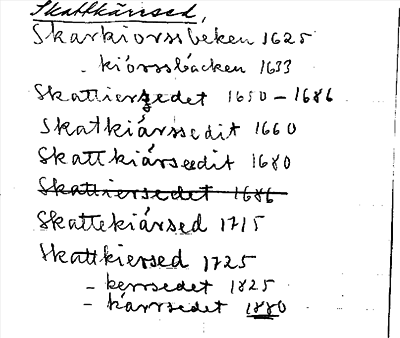 Skattkärrsed,
Skarkiorssbeken 1625
- kiörssbäcken 1633
Skattiersedet 1650-1686
Skatkiärssedit 1660
Skattkiärseedit 1680
Skattiersedet 1686
Skattekiärsed 1715
Skattkiersed 1725
- kerrsedet 1825
- kärrsedet 1880